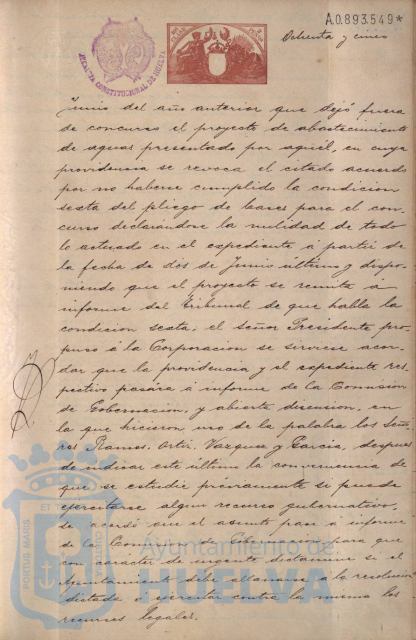 A.0.893.549*
Ochenta y cinco
ALCALDIA CONSTITUCIONAL DE HUELVA
Junio del año anterior que dejó fuera
de concurso el proyecto de abastecimiento
de aguas presentado por aquél, en cuya
providencia se revoca el citado acuerdo
por no haberse cumplido la condicion
sexta del pliego de bases para el con-
curso declarándose la nulidad de todo
lo actuado en el expediente á partir de
la fecha de dós de Junio último y dispo-
niendo que el proyecto se remita á
informe del Tribunal de que habla la
condicion sexta, el señor Presidente pro-
puso á la Corporacion se sirviese acor-
dar que la providencia y el expediente res-
pectivo pasára á informe de la Comision
de Gobernacion, y abierta discusion, en
la que hicieron uso de la palabra los Seño-
res Ramos, Ortiz, Vazquez y Garcia, despues
de indicar este último la conveniencia de
que se estudie préviamente si puede
ejercitarse algun recurso gubernativo,
se acordó que el asunto pase á informe
de la Comision de Gobernacion para que
con caracter de urgente dictamine si el
Ayuntamiento debe allanarse á la resolucion
dictada ó ejercitar contra la misma los
recursos legales.
PORTUS MARIS ET TERRAE CUSTODIA
Ayuntamiento de
HUELVA